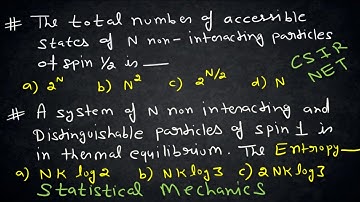 # The total number of accessible
states of N non-interacting particles
of spin 1/2 is __
a) 2^N b) N^2 c) 2^N/2 d) N
CSIR
NET
# A system of N non interacting and
Distinguishable particles of spin 1 is
in thermal equilibrium. The Entropy__
a) NK log2 b) NK log3 c) 2NK log3
Statistical Mechanics